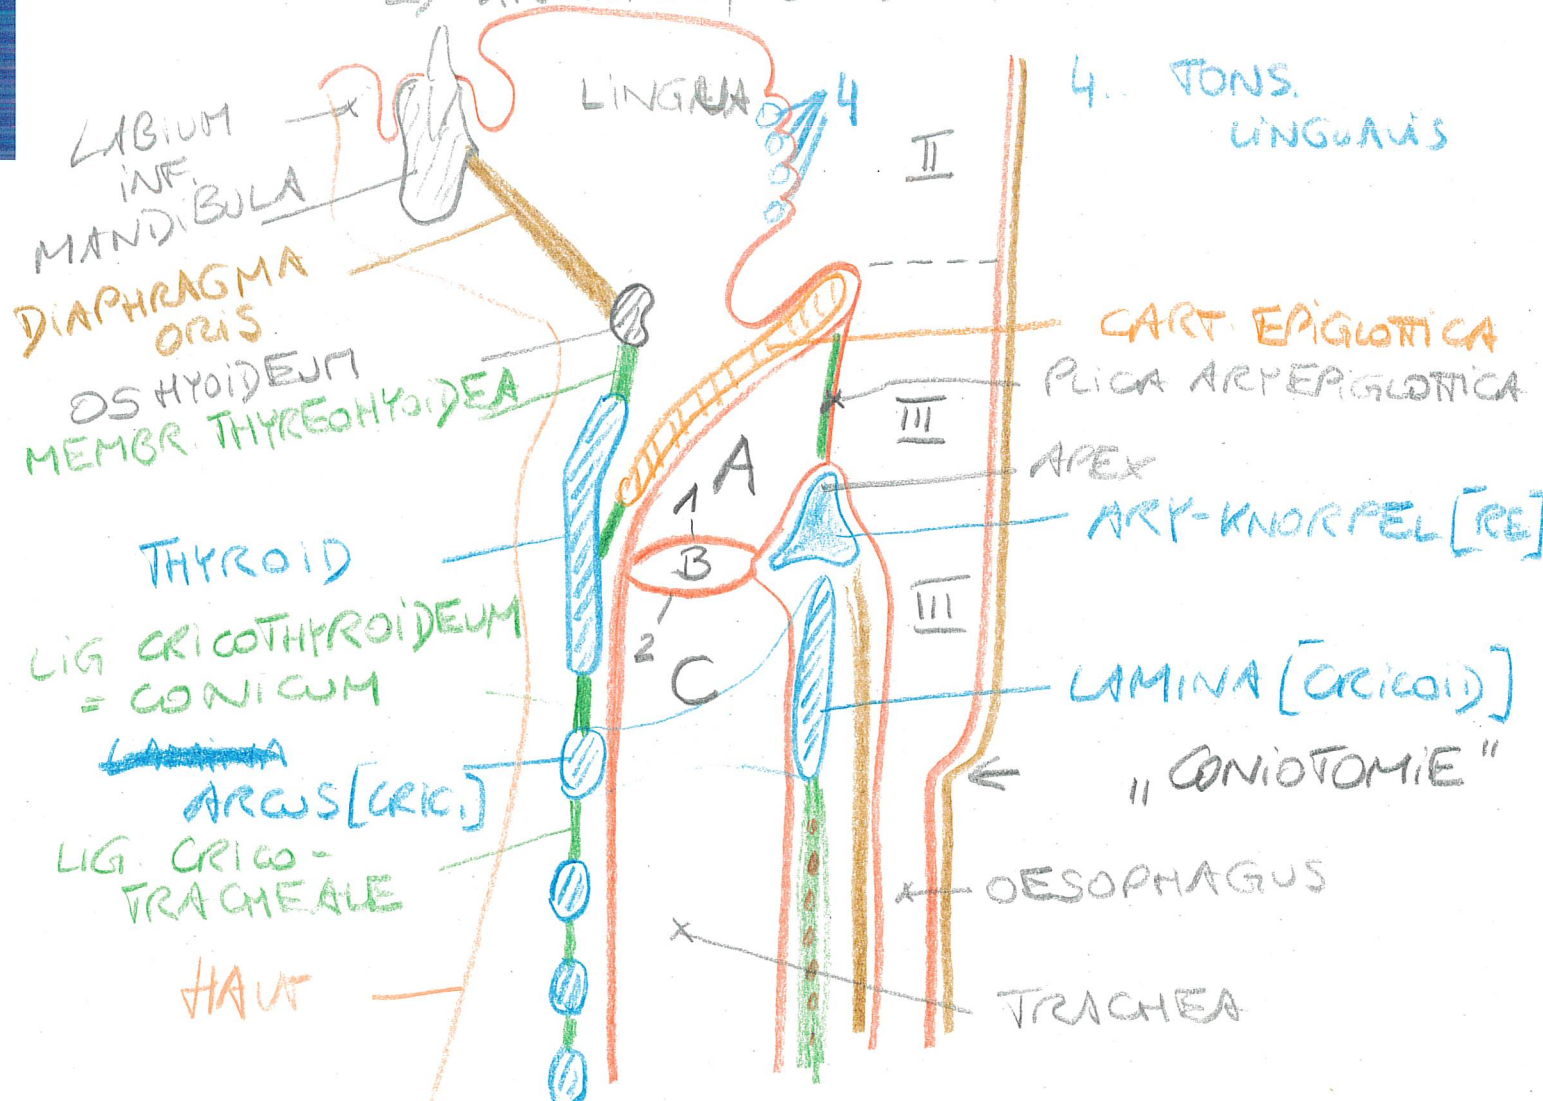 LABIUM
INF.
MANDIBULA
DIAPHRAGMA
ORIS
OS HYOIDEUM
MEMBR. THYREOHYOIDEA
THYROID
LIG CRICOTHYROIDEUM
= CONICUM
ARCUS [CRIC.]
LIG. CRICO-
TRACHEALE
HAUT
LINGUA
4
II
III
A
1
B
2
C
III
4. TONS.
LINGUALIS
CART. EPIGLOTTICA
PLICA ARYEPIGLOTTICA
APEX
ARY-KNORPEL [RE]
LAMINA [CRICOID]
„CONIOTOMIE"
OESOPHAGUS
TRACHEA